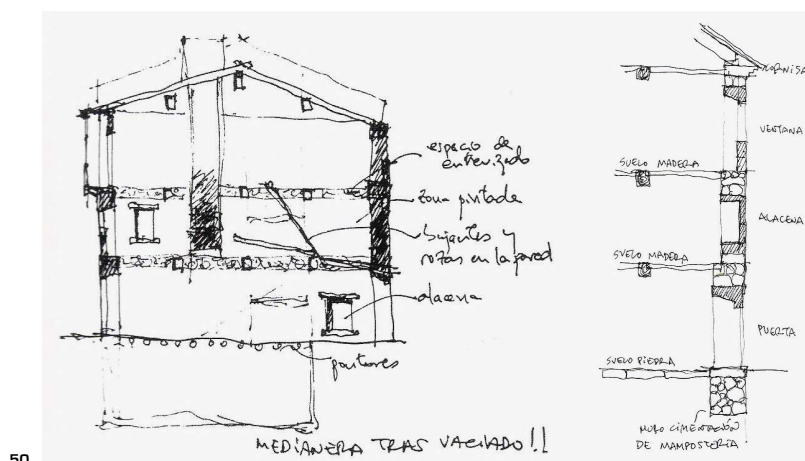 espacio de
entrevigado
zona pintada
bajantes y
rozas en la pared
alacena
pontones
MEDIANERA TRAS VACIADO!!
CORNISA
VENTANA
SUELO MADERA
ALACENA
SUELO MADERA
PUERTA
SUELO PIEDRA
MURO CIMENTACIÓN
DE MAMPOSTERÍA
50